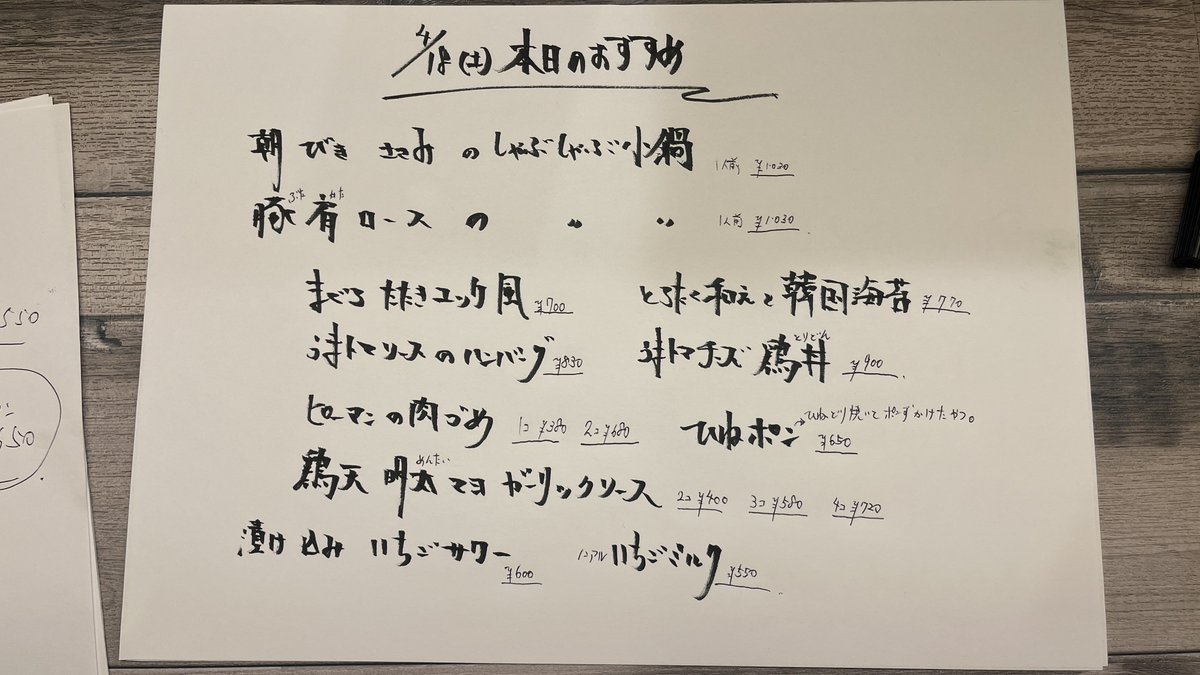 4/18(土)本日のおすすめ
朝びきささみのしゃぶしゃぶ小鍋 1人前 ¥1.030
豚肩ロースの 〃 〃 1人前 ¥1.030
ぶた かた
まぐろたたきユッケ風 ¥700 とろたく和えと韓国海苔 ¥770
うまトマソースのハンバーグ ¥830 うまトマチーズ鶏丼 ¥900
とりどん
ピーマンの肉づめ 1コ¥380 2コ¥680 ひねポン ¥650
→ひねどり焼いてポンずかけたやつ。
鶏天 明太マヨガーリックソース 2コ¥400 3コ¥580 4コ¥720
めんたい
漬け込みいちごサワー ¥600 ノンアル いちごミルク ¥550
550
650